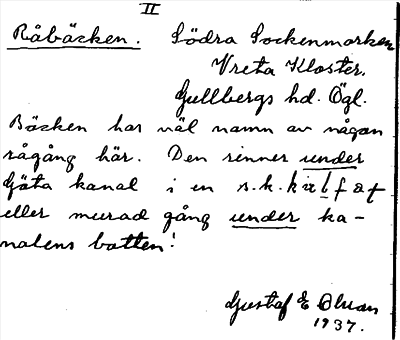 II
Råbäcken. Södra Sockenmarken
Vreta Kloster.
Gullbergs hd. Ögl.
Bäcken har väl namn av någon
rågång här. Den rinner under
Göta kanal i en s.k. kulfat
eller murad gång under ka-
nalens botten!
Gustaf E
1937.